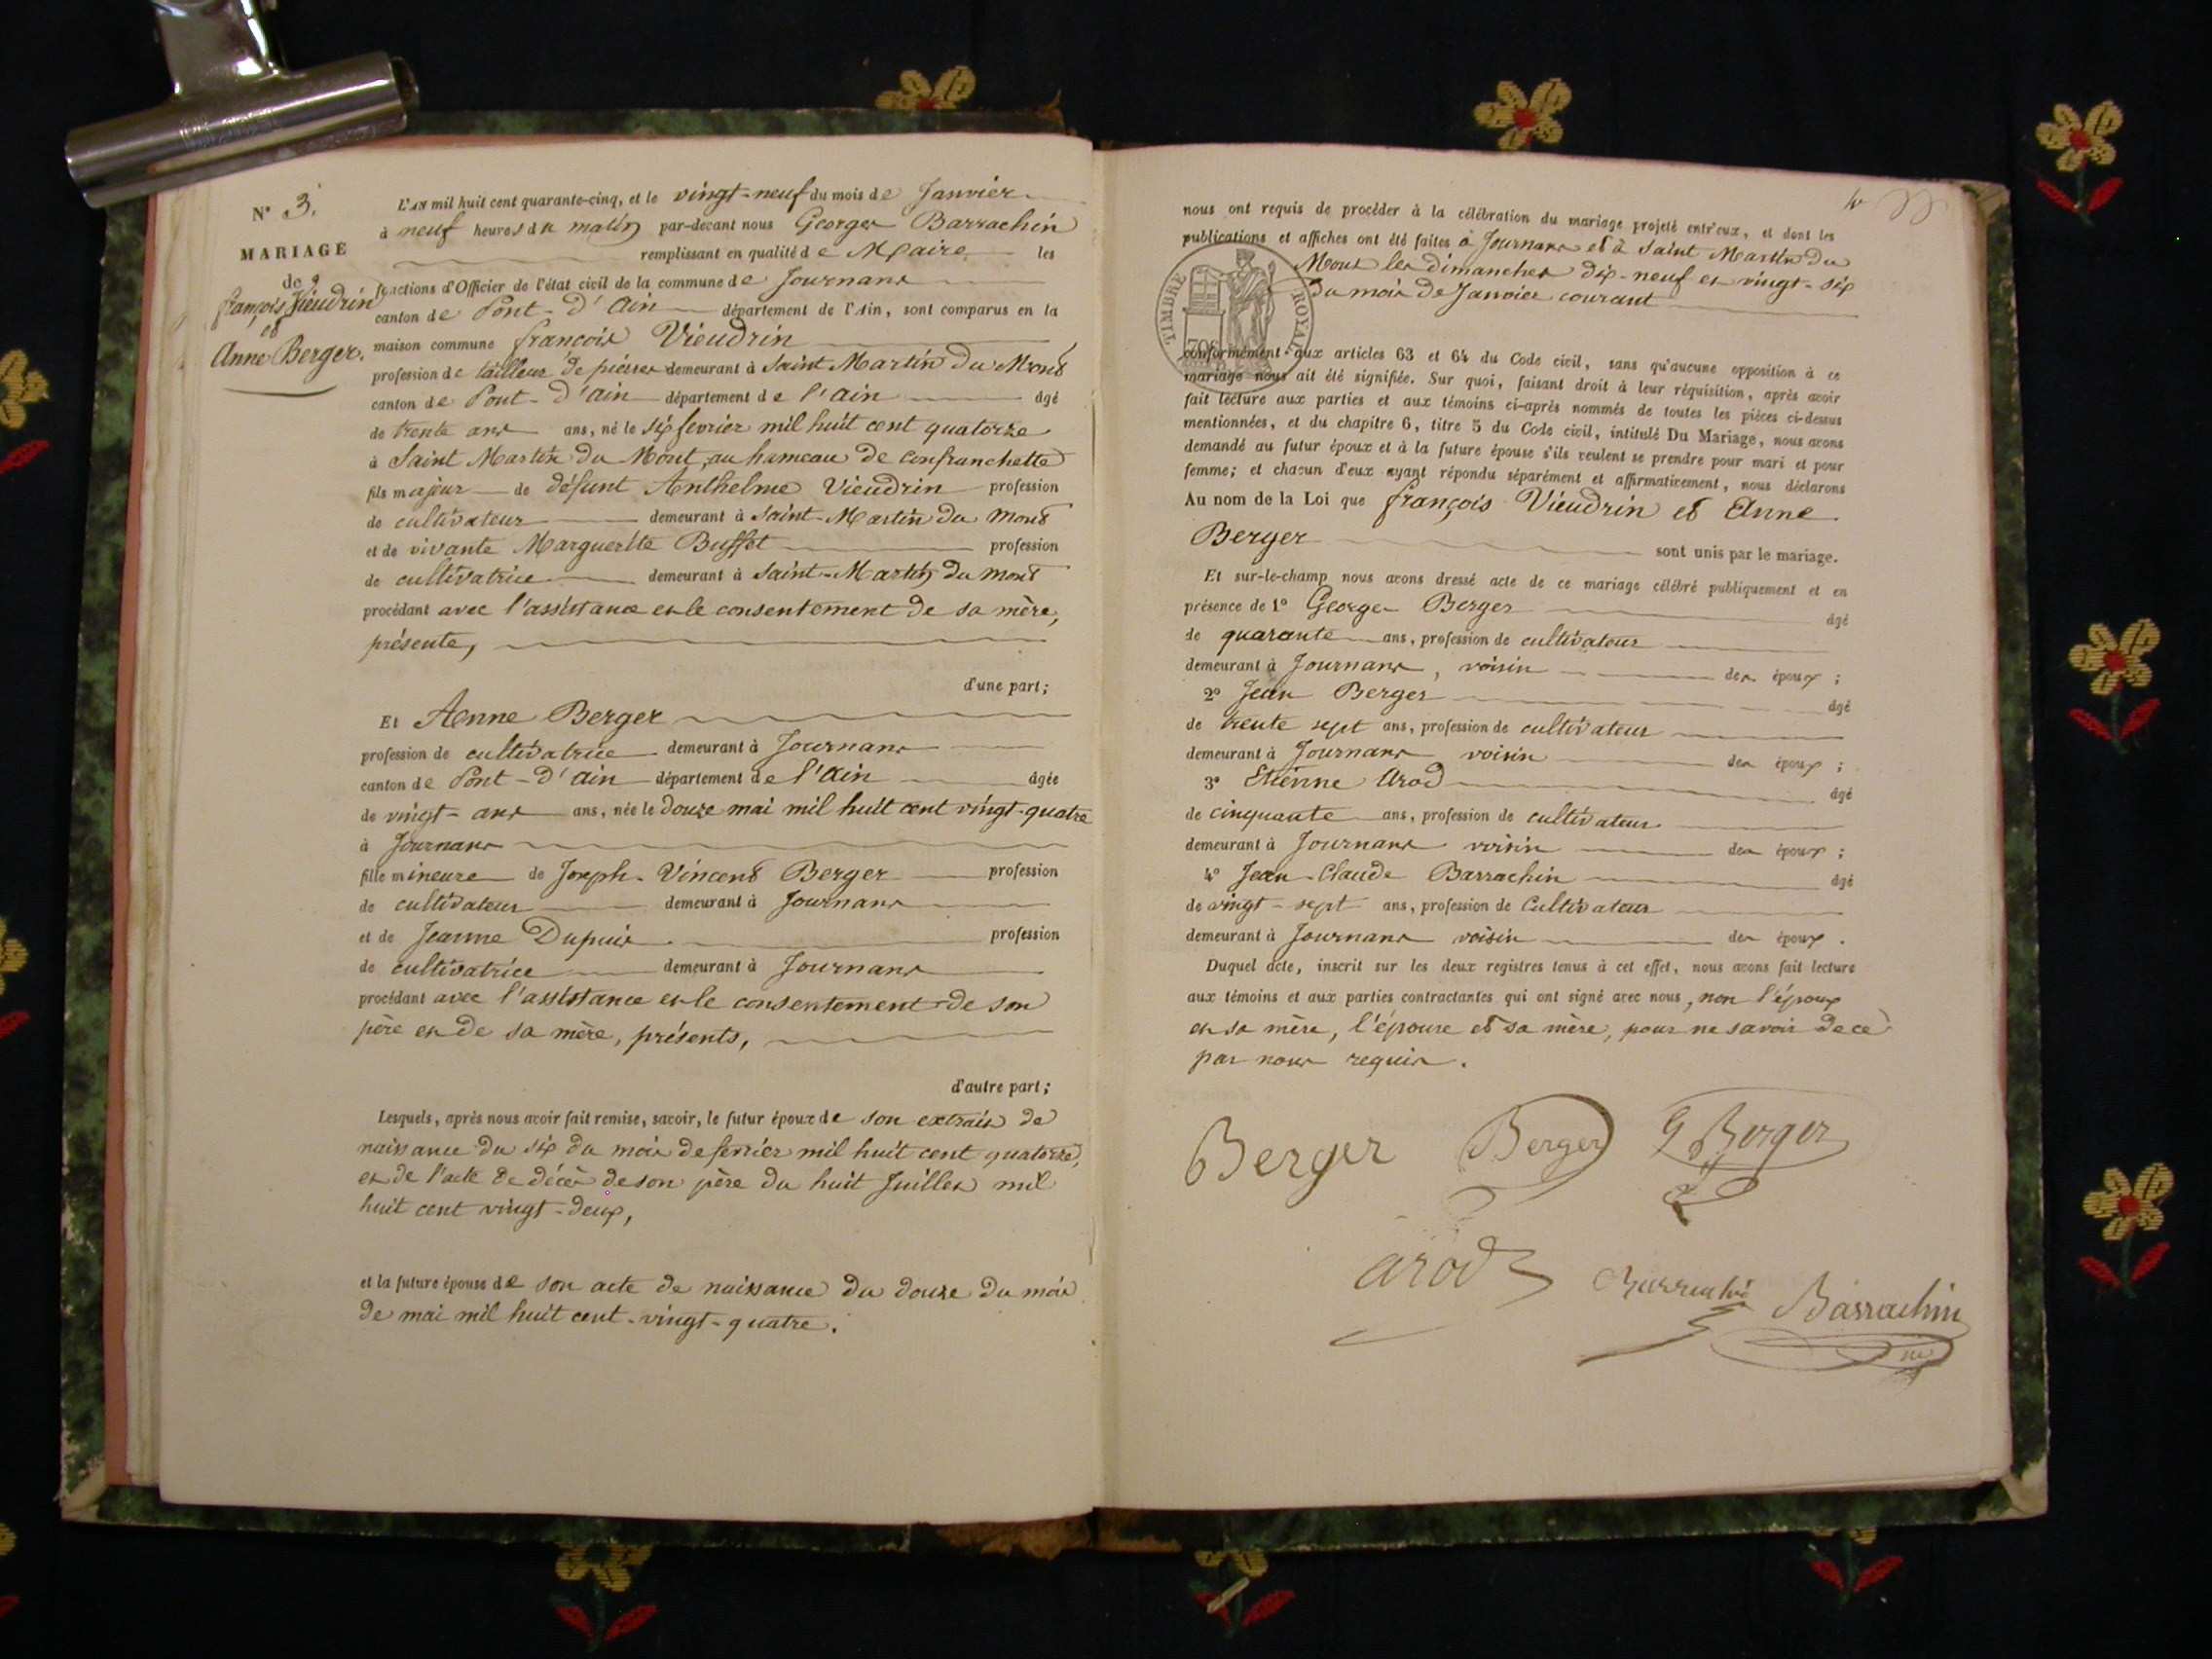 N° 3.
MARIAGE
de
françois Vieudrin
et
Anne Berger.
L'AN mil huit cent quarante-cinq, et le vingt-neuf du mois de Janvier
à neuf heures du matin par-devant nous Georges Barrachin
remplissant en qualité de Maire les
fonctions d'Officier de l'état civil de la commune de Journans
canton de Pont-d'ain département de l'Ain, sont comparus en la
maison commune françois Vieudrin
profession de tailleur de pierres demeurant à Saint Martin du Mont
canton de Pont-d'ain département de l'ain âgé
de trente ans ans, né le six fevrier mil huit cent quatorze
à Saint Martin du Mont, au hameau de Confranchette
fils majeur de défunt Anthelme Vieudrin profession
de cultivateur demeurant à Saint-Martin du Mont
et de vivante Marguerite Buffet profession
de cultivatrice demeurant à Saint-Martin du Mont
procédant avec l'assistance et le consentement de sa mère,
présente,
d'une part;
Et Anne Berger
profession de cultivatrice demeurant à Journans
canton de Pont-d'ain département de l'ain âgée
de vingt-ans ans, née le douze mai mil huit cent vingt-quatre
à Journans
fille mineure de Joseph-Vincent Berger profession
de cultivateur demeurant à Journans
et de Jeanne Dupuis profession
de cultivatrice demeurant à Journans
procédant avec l'assistance et le consentement de son
père et de sa mère, présents,
d'autre part;
Lesquels, après nous avoir fait remise, savoir, le futur époux de son extrait de
naissance du six du mois de fevrier mil huit cent quatorze,
et de l'acte de décès de son père du huit Juillet mil
huit cent vingt-deux,
et la future épouse de son acte de naissance du douze du mois
de mai mil huit cent-vingt-quatre.
nous ont requis de procéder à la célébration du mariage projeté entr'eux, et dont les
publications et affiches ont été faites à Journans et à Saint Martin du
Mont les dimanches dix-neuf et vingt-six
du mois de Janvier courant
TIMBRE ROYAL
conformément aux articles 63 et 64 du Code civil, sans qu'aucune opposition à ce
mariage nous ait été signifiée. Sur quoi, faisant droit à leur réquisition, après avoir
fait lecture aux parties et aux témoins ci-après nommés de toutes les pièces ci-dessus
mentionnées, et du chapitre 6, titre 5 du Code civil, intitulé Du Mariage, nous avons
demandé au futur époux et à la future épouse s'ils veulent se prendre pour mari et pour
femme; et chacun d'eux ayant répondu séparément et affirmativement, nous déclarons
Au nom de la Loi que françois Vieudrin et Anne
Berger sont unis par le mariage.
Et sur-le-champ nous avons dressé acte de ce mariage célébré publiquement et en
présence de 1° George Berger âgé
de quarante ans, profession de cultivateur
demeurant à Journans, voisin des époux ;
2° Jean Berger âgé
de trente sept ans, profession de cultivateur
demeurant à Journans voisin des époux ;
3° Etienne Arod âgé
de cinquante ans, profession de cultivateur
demeurant à Journans voisin des époux ;
4° Jean-Claude Barrachin âgé
de vingt-sept ans, profession de Cultivateur
demeurant à Journans voisin des époux .
Duquel acte, inscrit sur les deux registres tenus à cet effet, nous avons fait lecture
aux témoins et aux parties contractantes qui ont signé avec nous, non l'époux
et sa mère, l'épouse et sa mère, pour ne savoir de ce
par nous requis.
Berger Berger G Berger
arod Barrachin Barrachin